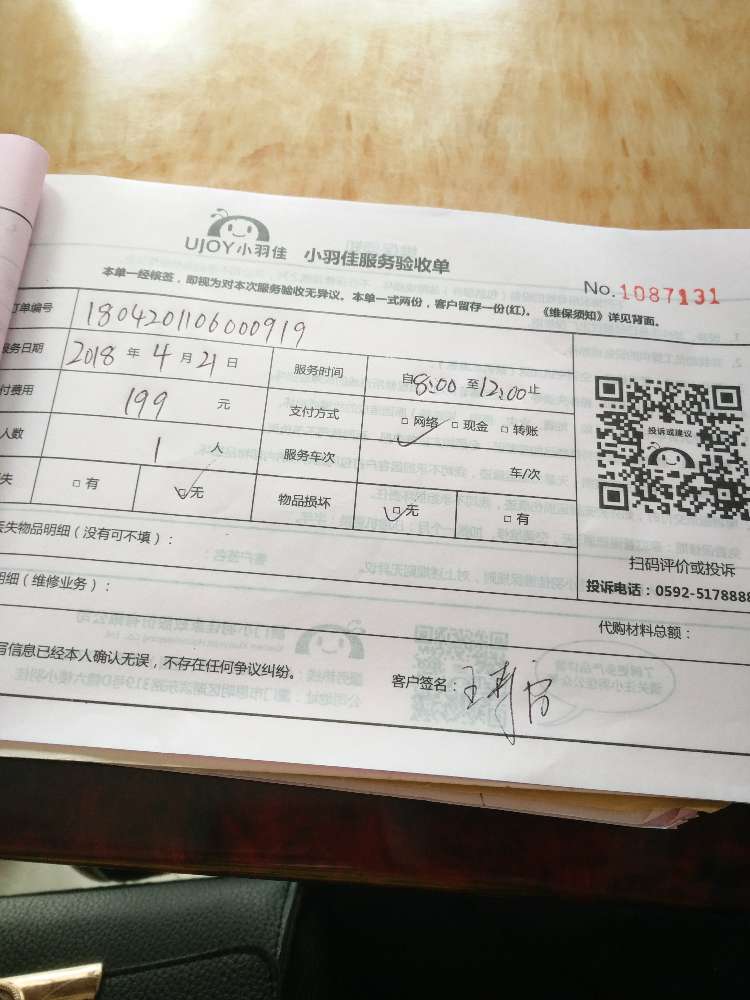 UJOY小羽佳 小羽佳服务验收单
本单一经核签，即视为对本次服务验收无异议。本单一式两份，客户留存一份(红)。《维保须知》详见背面。
No.1087131
订单编号 1804201106000919
服务日期 2018 年 4 月 21 日 服务时间 自8:00 至12:00止
付费用 199 元 支付方式 □ 网络 □ 现金 □ 转账
人数 1 人 服务车次 车/次
失 □ 有 □ 无 物品损坏 □ 无 □ 有
投诉或建议
扫码评价或投诉
投诉电话：0592-5178888
丢失物品明细（没有可不填）：
明细（维修业务）：
代购材料总额：
写信息已经本人确认无误，不存在任何争议纠纷。
客户签名：